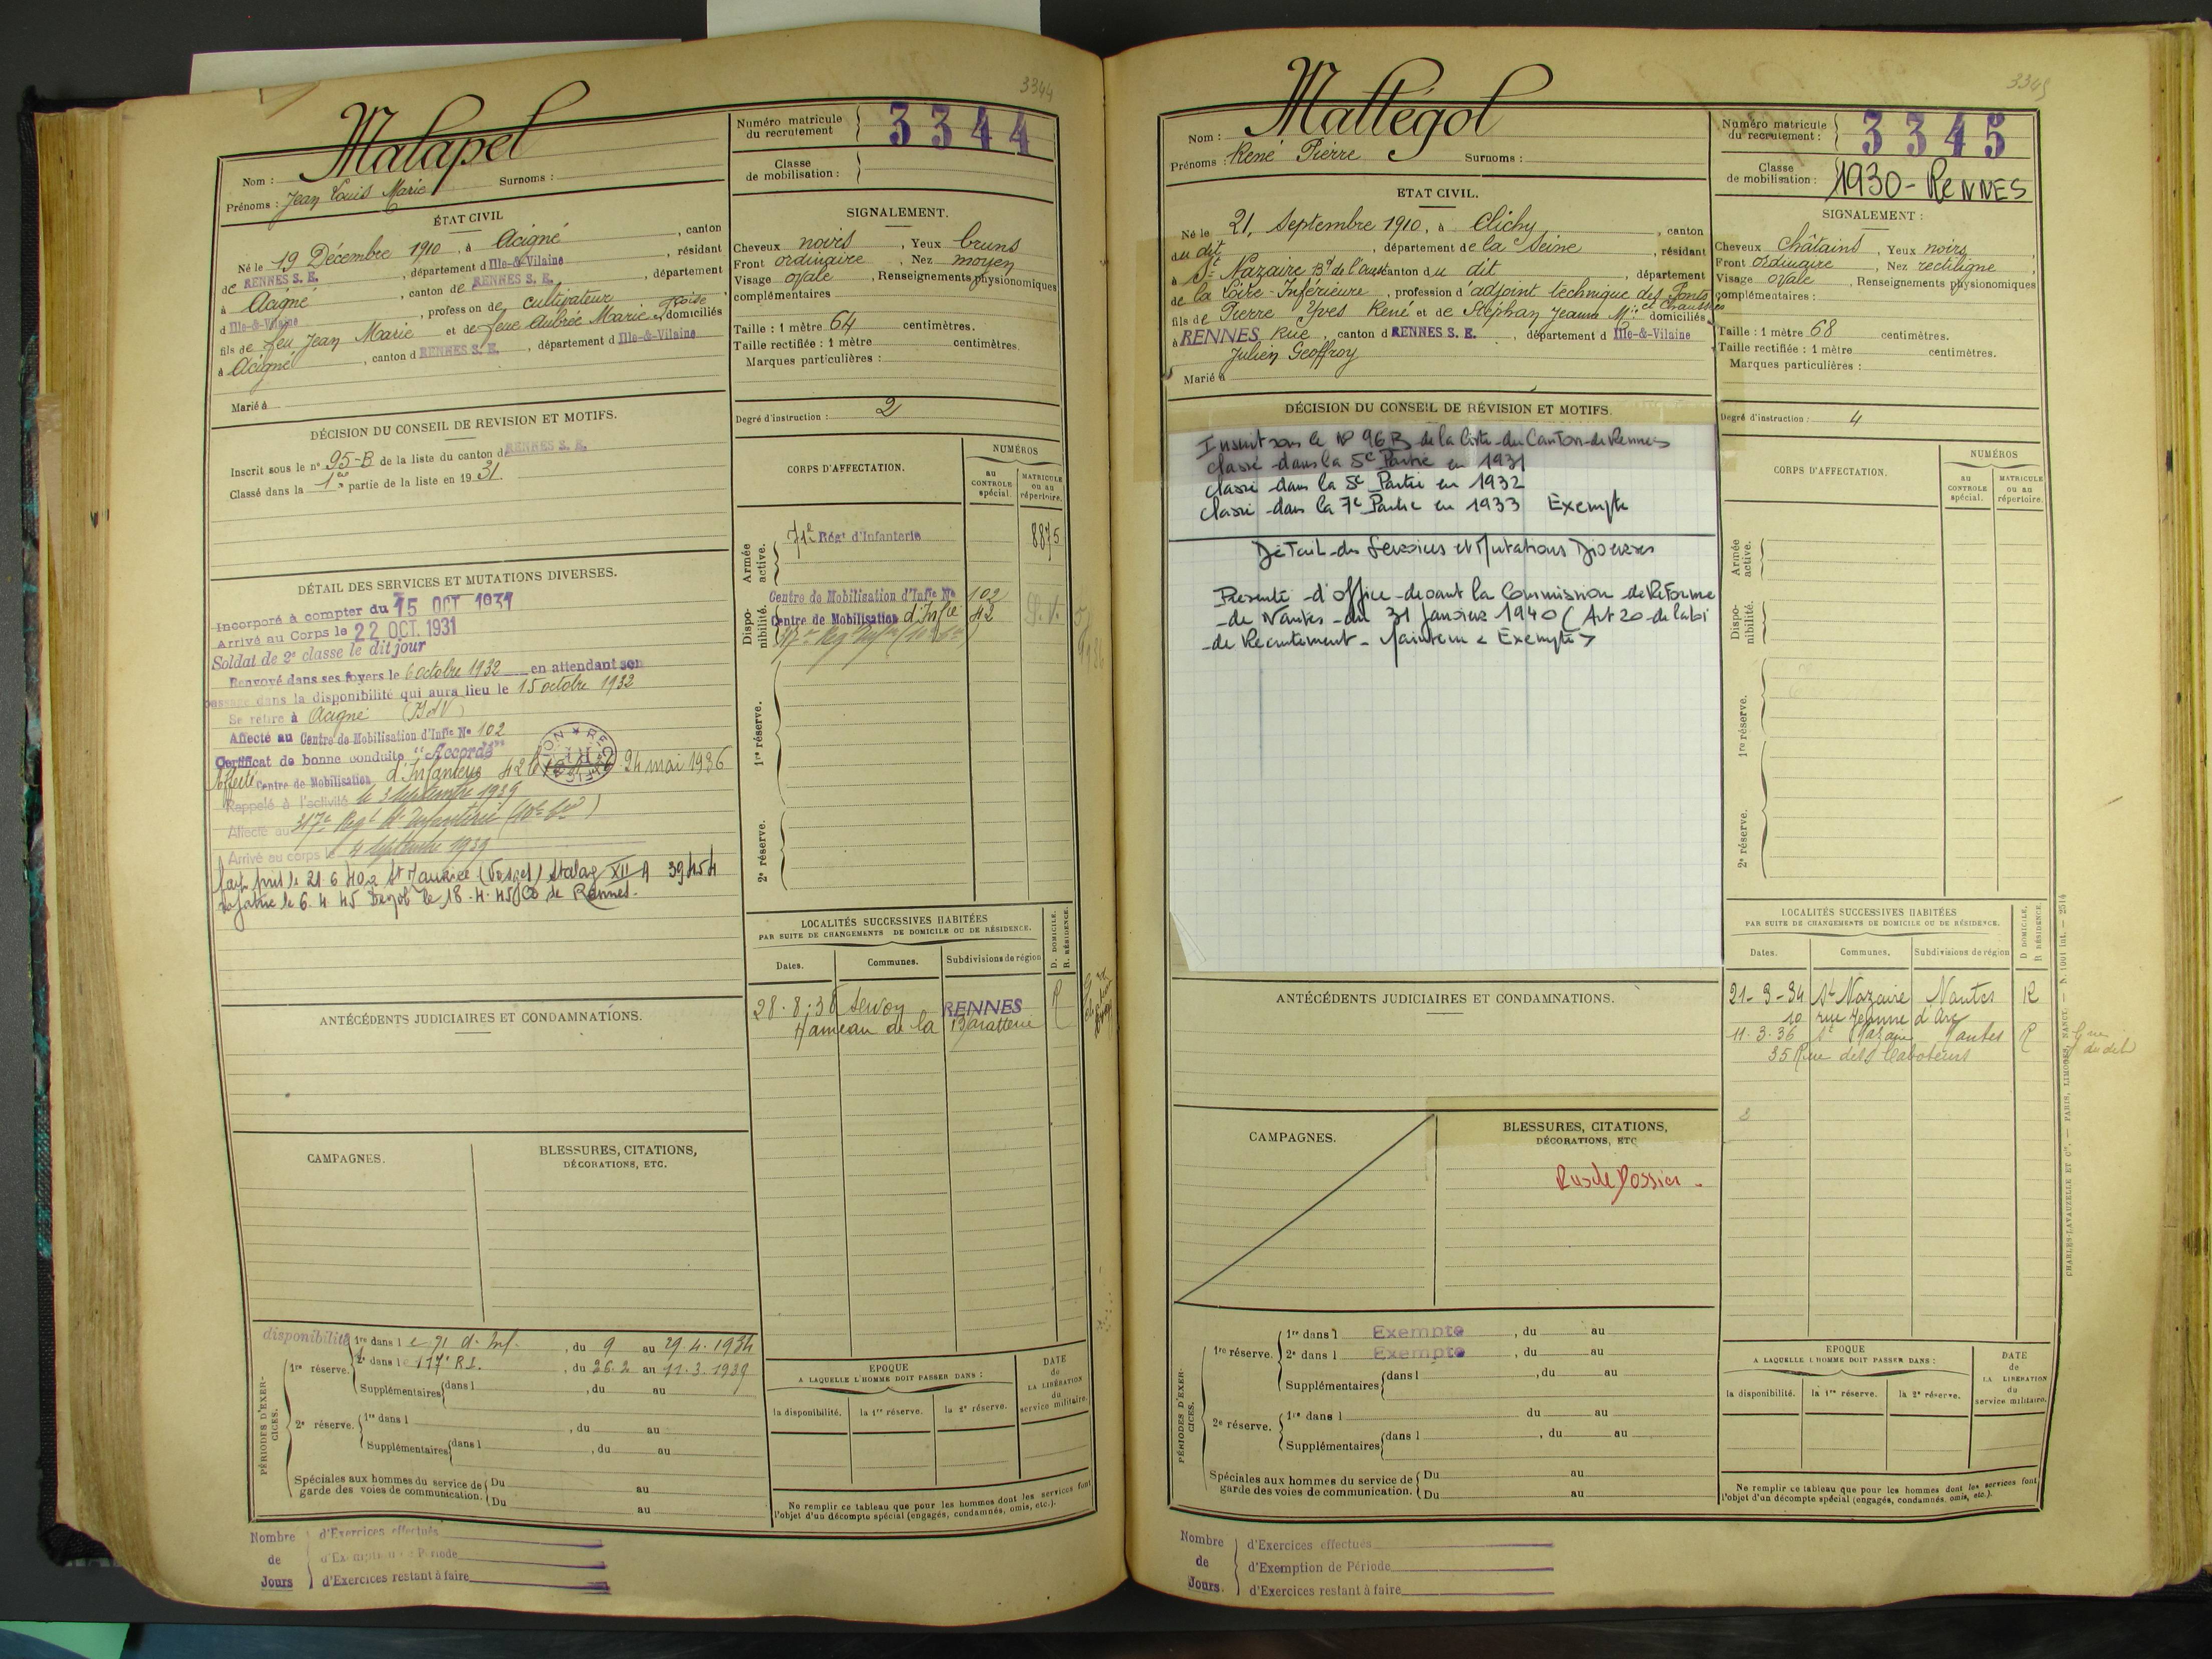 3344
Malapel
Nom :
Prénoms : Jean Louis Marie Surnoms :
Numéro matricule du recrutement 3344
Classe de mobilisation :
ÉTAT CIVIL
Né le 19 Décembre 1910, à Acigné, canton
de RENNES S. E., département d Ille-&-Vilaine, résidant
à Acigné, canton de RENNES S. E., département
d Ille-&-Vilaine, profession de cultivateur
fils de feu Jean Marie et de feue Aubrée Marie domiciliés
à Acigné, canton d RENNES S. E., département d Ille-&-Vilaine
Marié à
SIGNALEMENT.
Cheveux noirs, Yeux bruns
Front ordinaire, Nez moyen
Visage ovale, Renseignements physionomiques
complémentaires
Taille : 1 mètre 64 centimètres.
Taille rectifiée : 1 mètre centimètres.
Marques particulières :
Degré d'instruction : 2
DÉCISION DU CONSEIL DE REVISION ET MOTIFS.
Inscrit sous le n° 95-B de la liste du canton d RENNES S. E.
Classé dans la 1re partie de la liste en 1931.
DÉTAIL DES SERVICES ET MUTATIONS DIVERSES.
Incorporé à compter du 15 OCT 1931
Arrivé au Corps le 22 OCT. 1931
Soldat de 2e classe le dit jour
Renvoyé dans ses foyers le 6 octobre 1932 en attendant son
passage dans la disponibilité qui aura lieu le 15 octobre 1932
Se retire à Acigné (I et V)
Affecté au Centre de Mobilisation d'Infie No 102
Certificat de bonne conduite "Accordé"
Affecté Centre de Mobilisation d'Infanterie 42 le 24 mai 1936
Rappelé à l'activité le 3 septembre 1939
Affecté au 317e Regt d'Infanterie
Arrivé au corps le 4 septembre 1939
fait pris le 21.6.40 à St Maurice (Vosges) Stalag XII A 39454
Rapatrié le 6.4.45 Démob le 18.4.45 de Rennes.
CORPS D'AFFECTATION.
NUMÉROS
au CONTROLE spécial.
MATRICULE ou au répertoire.
Armée active.
71e Régt d'Infanterie 8875
Disponibilité.
Centre de Mobilisation d'Infie No 102
Centre de Mobilisation d'Infie 42
1re réserve.
2e réserve.
LOCALITÉS SUCCESSIVES HABITÉES
PAR SUITE DE CHANGEMENTS DE DOMICILE OU DE RÉSIDENCE.
D. DOMICILE. R. RÉSIDENCE.
Dates. Communes. Subdivisions de région
28.8.36 Servon RENNES R
Hameau de la Baratterie
ANTÉCÉDENTS JUDICIAIRES ET CONDAMNATIONS.
CAMPAGNES.
BLESSURES, CITATIONS,
DÉCORATIONS, ETC.
PÉRIODES D'EXERCICES.
disponibilité
1re réserve. 1re dans le 71 d'Inf., du 9 au 29.4.1934
2e dans le 117e R.I., du 26.2 au 11.3.1939
Supplémentaires dans l , du au
2e réserve. 1re dans l , du au
Supplémentaires dans l , du au
Spéciales aux hommes du service de garde des voies de communication. Du au
Du au
EPOQUE
A LAQUELLE L'HOMME DOIT PASSER DANS :
la disponibilité. la 1re réserve. la 2e réserve.
DATE de LA LIBÉRATION du service militaire.
Ne remplir ce tableau que pour les hommes dont les services font
l'objet d'un décompte spécial (engagés, condamnés, omis, etc.).
Nombre de Jours
d'Exercices effectués
d'Exemption de Période
d'Exercices restant à faire
3345
Nom : Mattégol
Prénoms : René Pierre Surnoms :
Numéro matricule du recrutement : 3345
Classe de mobilisation : 1930 - RENNES
ETAT CIVIL.
Né le 21, Septembre 1910, à Clichy, canton
du dit, département de la Seine, résidant
à St Nazaire Bd de l'Ouest canton du dit, département
de la Loire-Inférieure, profession d'adjoint technique des Ponts et Chaussées
fils de Pierre Yves René et de Stéphan Jeanne Mie domiciliés
à RENNES Rue, canton d RENNES S. E., département d Ille-&-Vilaine
Julien Geoffroy
Marié à
SIGNALEMENT :
Cheveux châtains, Yeux noirs
Front ordinaire, Nez rectiligne
Visage ovale, Renseignements physionomiques
complémentaires :
Taille : 1 mètre 68 centimètres.
Taille rectifiée : 1 mètre centimètres.
Marques particulières :
Degré d'instruction : 4
DÉCISION DU CONSEIL DE RÉVISION ET MOTIFS.
Inscrit sous le No 96 B de la liste du Canton de Rennes
classé dans la 5e Partie en 1931
classé dans la 5e Partie en 1932
classé dans la 7e Partie en 1933 Exempté
Détail des Services et Mutations Diverses
Présenté d'office devant la Commission de Réforme
de Nantes du 31 Janvier 1940 (Art 20 de la loi
de Recrutement - Maintenu < Exempté >
CORPS D'AFFECTATION.
NUMÉROS
au CONTROLE spécial.
MATRICULE ou au répertoire.
Armée active.
Disponibilité.
1re réserve.
2e réserve.
LOCALITÉS SUCCESSIVES HABITÉES
PAR SUITE DE CHANGEMENTS DE DOMICILE OU DE RÉSIDENCE.
D DOMICILE. R RÉSIDENCE.
Dates. Communes. Subdivisions de région
21-3-34 St Nazaire Nantes R
10 rue Jeanne d'Arc
11.3.36 St Nazaire Nantes R
35 Rue des Caboteurs
ANTÉCÉDENTS JUDICIAIRES ET CONDAMNATIONS.
CAMPAGNES.
BLESSURES, CITATIONS,
DÉCORATIONS, ETC
Dossier
PÉRIODES D'EXERCICES.
1re réserve. 1re dans l Exempté, du au
2e dans l Exempté, du au
Supplémentaires dans l , du au
2e réserve. 1re dans l du au
Supplémentaires dans l , du au
Spéciales aux hommes du service de garde des voies de communication. Du au
Du au
EPOQUE
A LAQUELLE L'HOMME DOIT PASSER DANS :
la disponibilité. la 1re réserve. la 2e réserve.
DATE de LA LIBÉRATION du service militaire.
Ne remplir ce tableau que pour les hommes dont les services font
l'objet d'un décompte spécial (engagés, condamnés, omis, etc.).
Nombre de Jours.
d'Exercices effectués
d'Exemption de Période
d'Exercices restant à faire
CHARLES-LAVAUZELLE ET Cie. — PARIS, LIMOGES, NANCY. — N. 1001 Int. — 2514